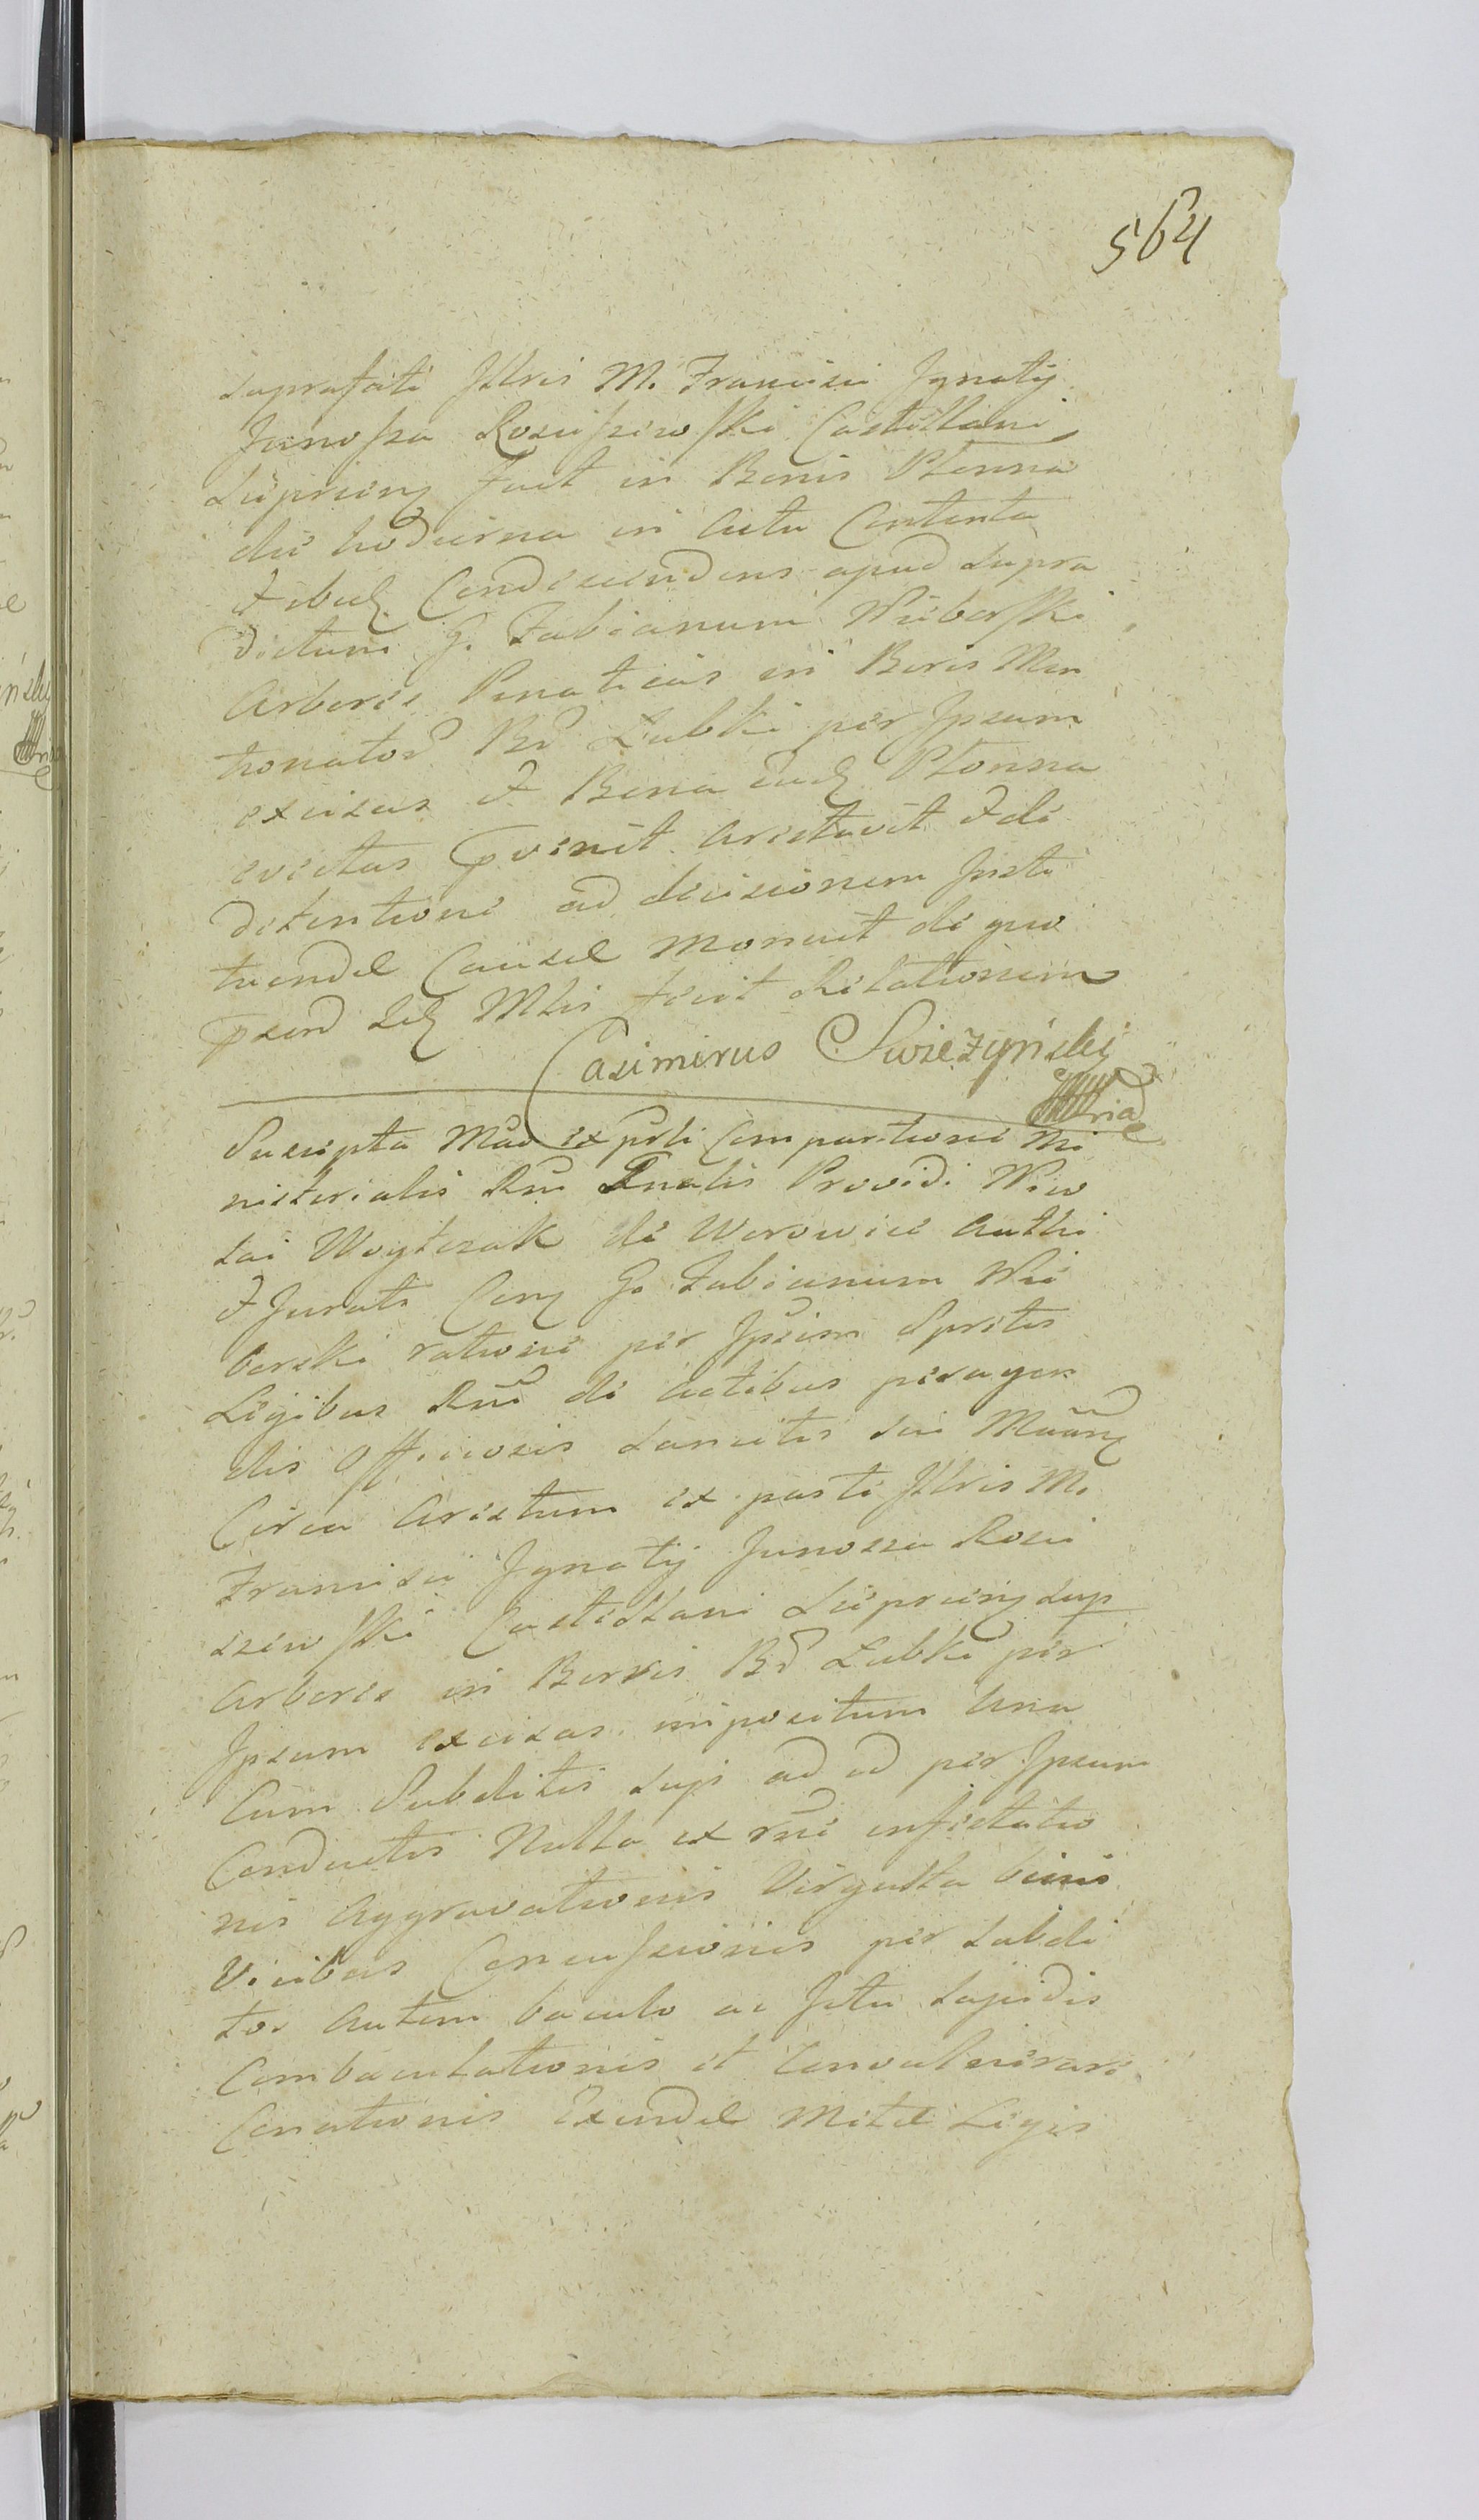 564
suprafati Jllris M. Francisci Jgnatij
Junosza Rosciszewski Castellani
Lüpriens fuit in Bonis Płonna
die hodierna in actu Contenta
et ibid Condescendens apud supra
dictum G. Fabianum Wüborski
Arbores in Boris Men
tionator Bd Zubki per Jpsum
excisas et Bona ead Płonna
evectas pvenit arestavit et de
detentione ad decisionem Justi
tuendæ Causæ monuit de quo
psend Mtis fecit Relationem
Casimirus Swieżyński
Suscipta Mad ex psti Comparitione Mi
nisterialis Rni Gnalis Providi Nico
lai Woytczak de Worowice Authi
et Jurati Cong G. Fabianum Wü
borski ratione per Jpsum Spretis
Legibus Rni de actibus peragen
dis Officiosis sancitis sui
Circa Arestum ex parte Jllris M.
Francisci Jgnatij Junosza Rosci
szewski Castellani Lüpriens sup
Arbores in Borris Bd Zubki per
Jpsum excisas impositum una
Cum Subditis suys ad id per Jpsum
Conductis Nulla ex rni infestatio
nis Aggravationis Virgulta binis
Vicibus Concussionis per subdi
tos autem baculo ac Jctu Lapidis
Combaculationis et Convulnerari
Conationis Exindæ Mitæ Legis